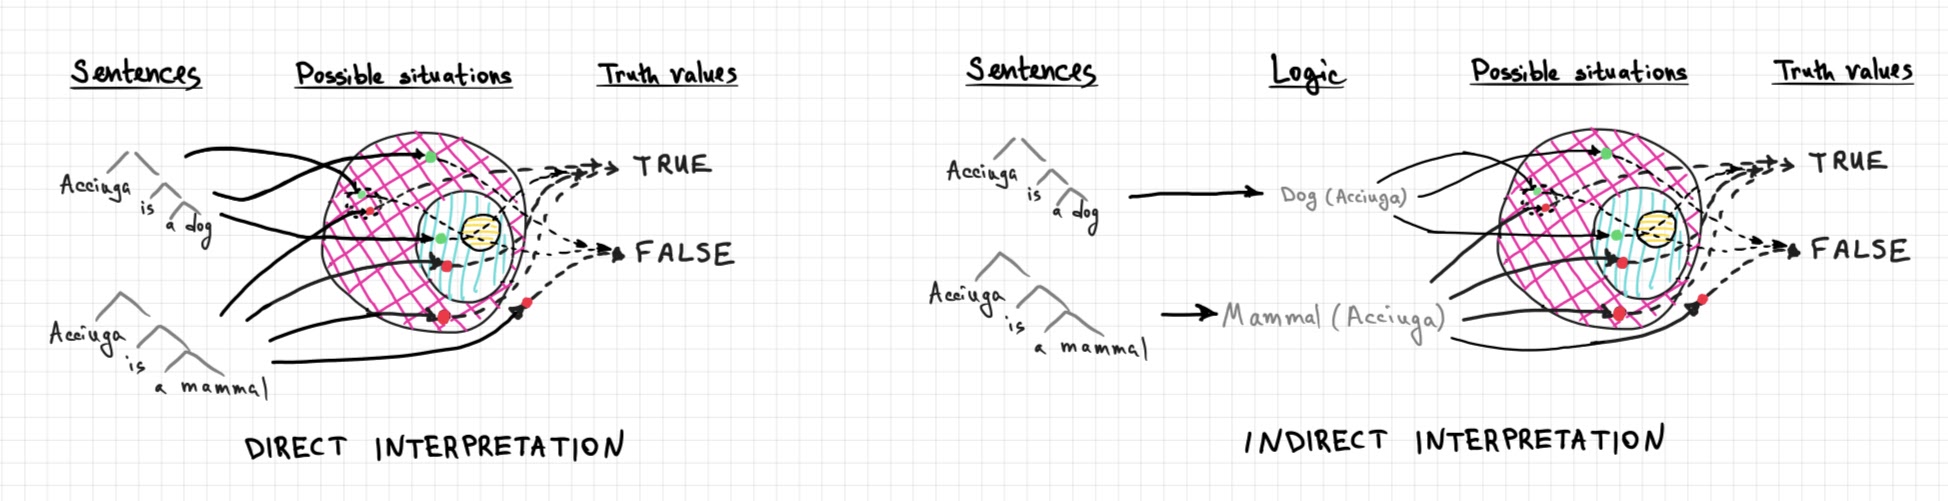 Sentences
Possible situations
Truth values
Acciuga
is
a dog
TRUE
FALSE
Acciuga
is
a mammal
DIRECT INTERPRETATION
Sentences
Logic
Possible situations
Truth values
Acciuga
is
a dog
Dog (Acciuga)
TRUE
FALSE
Acciuga
is
a mammal
Mammal (Acciuga)
INDIRECT INTERPRETATION